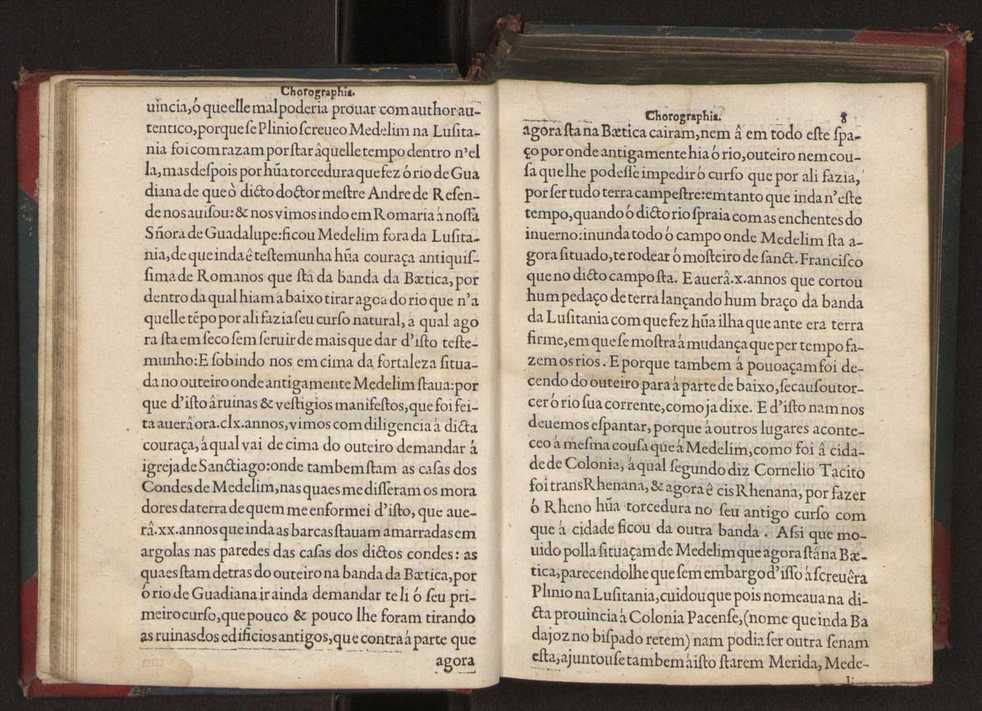 Chorographia.
uincia, ó que elle mal poderia prouar com author au-
tentico, porque se Plinio screueo Medelim na Lusita-
nia foi com razam por star âquelle tempo dentro n'el
la, mas despois por hũa torcedura que fez ó rio de Gua
diana de que ò dicto doctor mestre Andre de Resen-
de nos auisou: & nos vimos indo em Romaria â nossa
Sñora de Guadalupe: ficou Medelim fora da Lusita-
nia, de que inda ê testemunha hũa couraça antiquis-
sima de Romanos que stâ da banda da Bætica, por
dentro da qual hiam a baixo tirar agoa do rio que n'a
quelle tẽpo por ali fazia seu curso natural, a qual ago
ra sta em seco sem seruir de mais que dar d'isto teste-
munho: E sobindo nos em cima da fortaleza situa-
da no outeiro onde antigamente Medelim staua: por
que d'isto â ruinas & vestigios manifestos, que foi fei-
ta auerâ ora. clx. annos, vimos com diligencia â dicta
couraça, â qual vai de cima do outeiro demandar â
igreja de Sanctiago: onde tambem stam as casas dos
Condes de Medelim, nas quaes me disseram os mora
dores da terra de quem me enformei d'isto, que aue-
râ. xx. annos que inda as barcas stauam amarradas em
argolas nas paredes das casas dos dictos condes: as
quaes stam detras do outeiro na banda da Bætica, por
ó rio de Guadiana ir ainda demandar te li ó seu pri-
meiro curso, que pouco & pouco lhe foram tirando
as ruinas dos edificios antigos, que contra â parte que
agora
Chorographia. 8
agora sta na Bætica cairam, nem â em todo este spa-
ço por onde antigamente hia ó rio, outeiro nem cou-
sa que lhe podesse impedir ò curso que por ali fazia,
por ser tudo terra campestre: em tanto que inda n'este
tempo, quando ó dicto rio spraia com as enchentes do
inuerno: inunda todo ó campo onde Medelim sta a-
gora situado, te rodear ó mosteiro de sanct. Francisco
que no dicto campo sta. E auerâ. x. annos que cortou
hum pedaço de terra lançando hum braço da banda
da Lusitania com que fez hũa ilha que ante era terra
firme, em que se mostra â mudança que per tempo fa-
zem os rios. E porque tambem â pouoaçam foi de-
cendo do outeiro para â parte de baixo, se causou tor-
cer ó rio sua corrente, como ja dixe. E d'isto nam nos
deuemos espantar, porque â outros lugares aconte-
ceo â mesma cousa que â Medelim, como foi â cida-
de de Colonia, âqual segundo diz Cornelio Tacito
foi transRhenana, & agora ê cisRhenana, por fazer
ò Rheno hũa torcedura no seu antigo curso com
que â cidade ficou da outra banda. Assi que mo-
uido polla situaçam de Medelim que agora stâ na Bæ-
tica, parecendolhe que sem embargo d'isso â screuêra
Plinio na Lusitania, cuidou que pois nomeaua na di-
cta prouincia â Colonia Pacense, (nome que inda Ba
dajoz no bispado retem) nam podia ser outra senam
esta, ajuntouse tambem â isto starem Merida, Mede-
li-